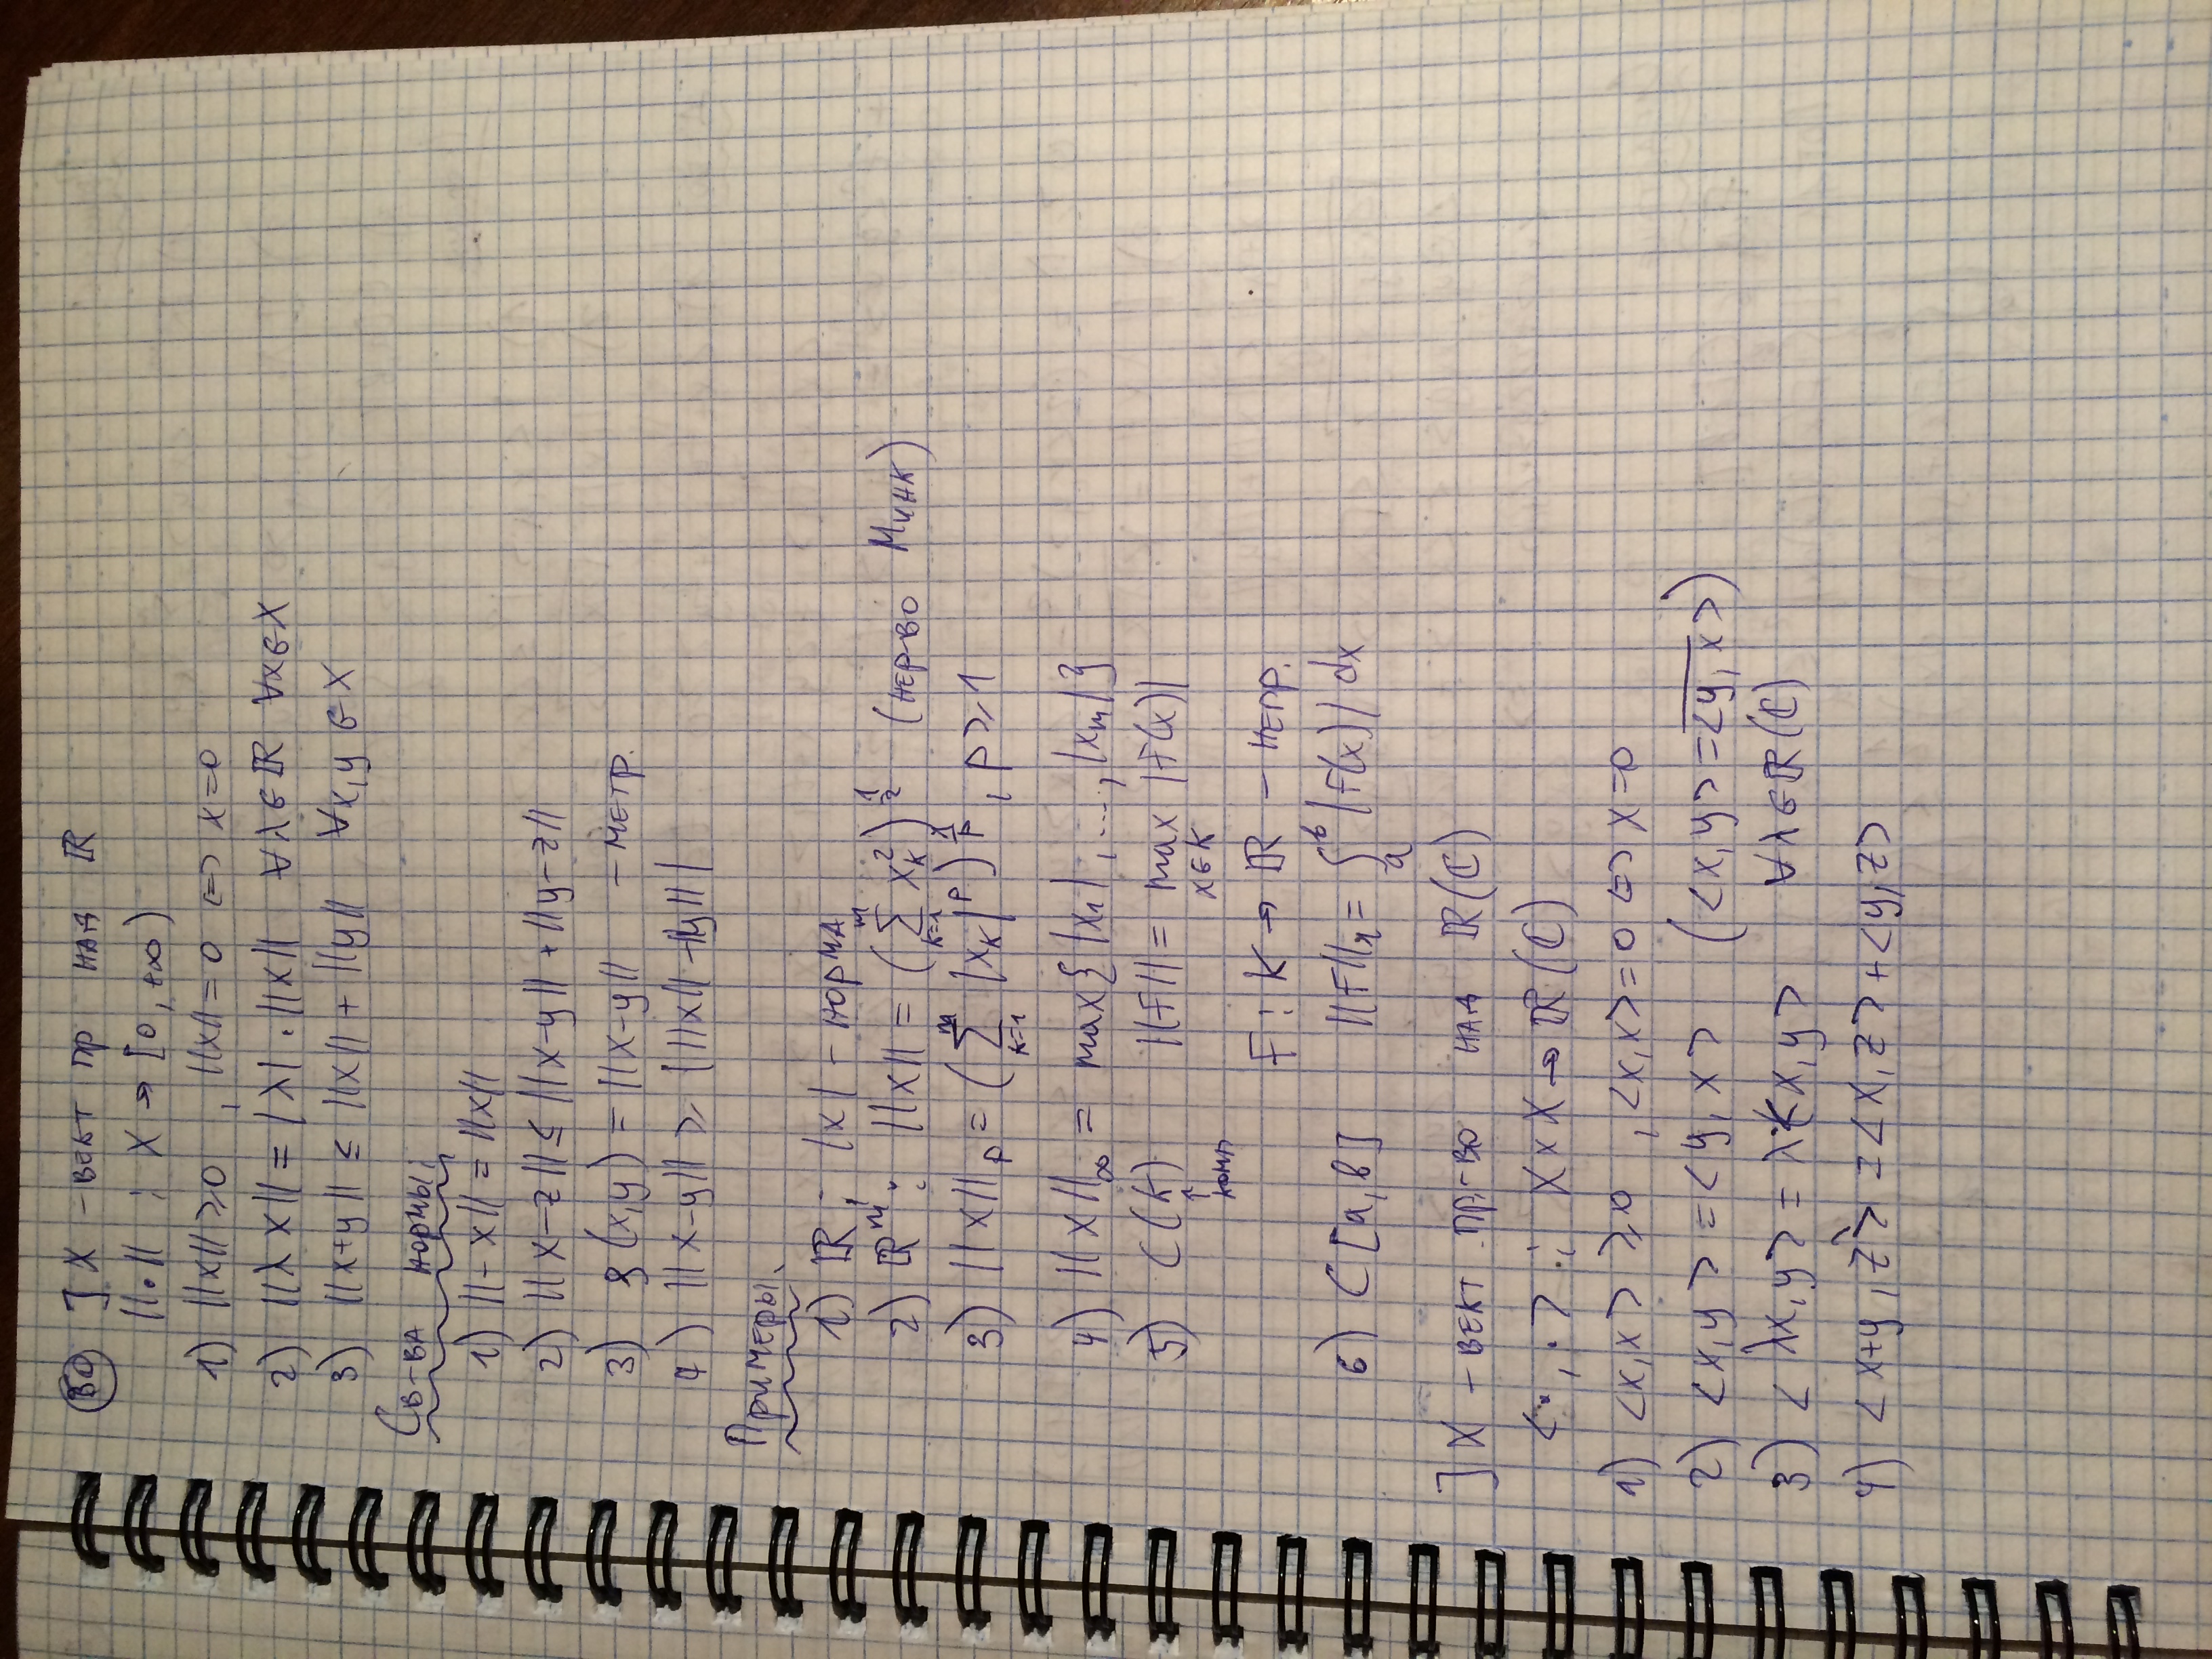 ] X – вект пр над ℝ
||·|| : X → [0, +∞)
1) ||x|| ≥ 0 , ||x|| = 0 <=> x = 0
2) ||λx|| = |λ| · ||x|| ∀λ∈ℝ ∀x∈X
3) ||x+y|| ≤ ||x|| + ||y|| ∀x,y ∈ X
Св-ва нормы:
1) ||-x|| = ||x||
2) ||x-z|| ≤ ||x-y|| + ||y-z||
3) ρ(x,y) = ||x-y|| – метр.
4) ||x-y|| ≥ | ||x|| - ||y|| |
Примеры.
1) ℝ ; |x| – норма
2) ℝ^m : ||x|| = (∑_{k=1}^{m} x_k^2)^{1/2} (нер-во Минк)
3) ||x||_p = (∑_{k=1}^{m} |x_k|^p)^{1/p} , p ≥ 1
4) ||x||_∞ = max{|x_1|, ..., |x_m|}
5) C(K) ||f|| = max_{x∈K} |f(x)|
↑ комп
f : K → ℝ – непр.
6) C[a,b] ||f||_1 = ∫_a^b |f(x)| dx
] X – вект пр-во над ℝ(ℂ)
<·,·> : X×X → ℝ(ℂ)
1) <x,x> ≥ 0 , <x,x> = 0 <=> x = 0
2) <x,y> = <y,x> (<x,y> = \overline{<y,x>})
3) <λx,y> = λ·<x,y> ∀λ∈ℝ(ℂ)
4) <x+y,z> = <x,z> + <y,z>